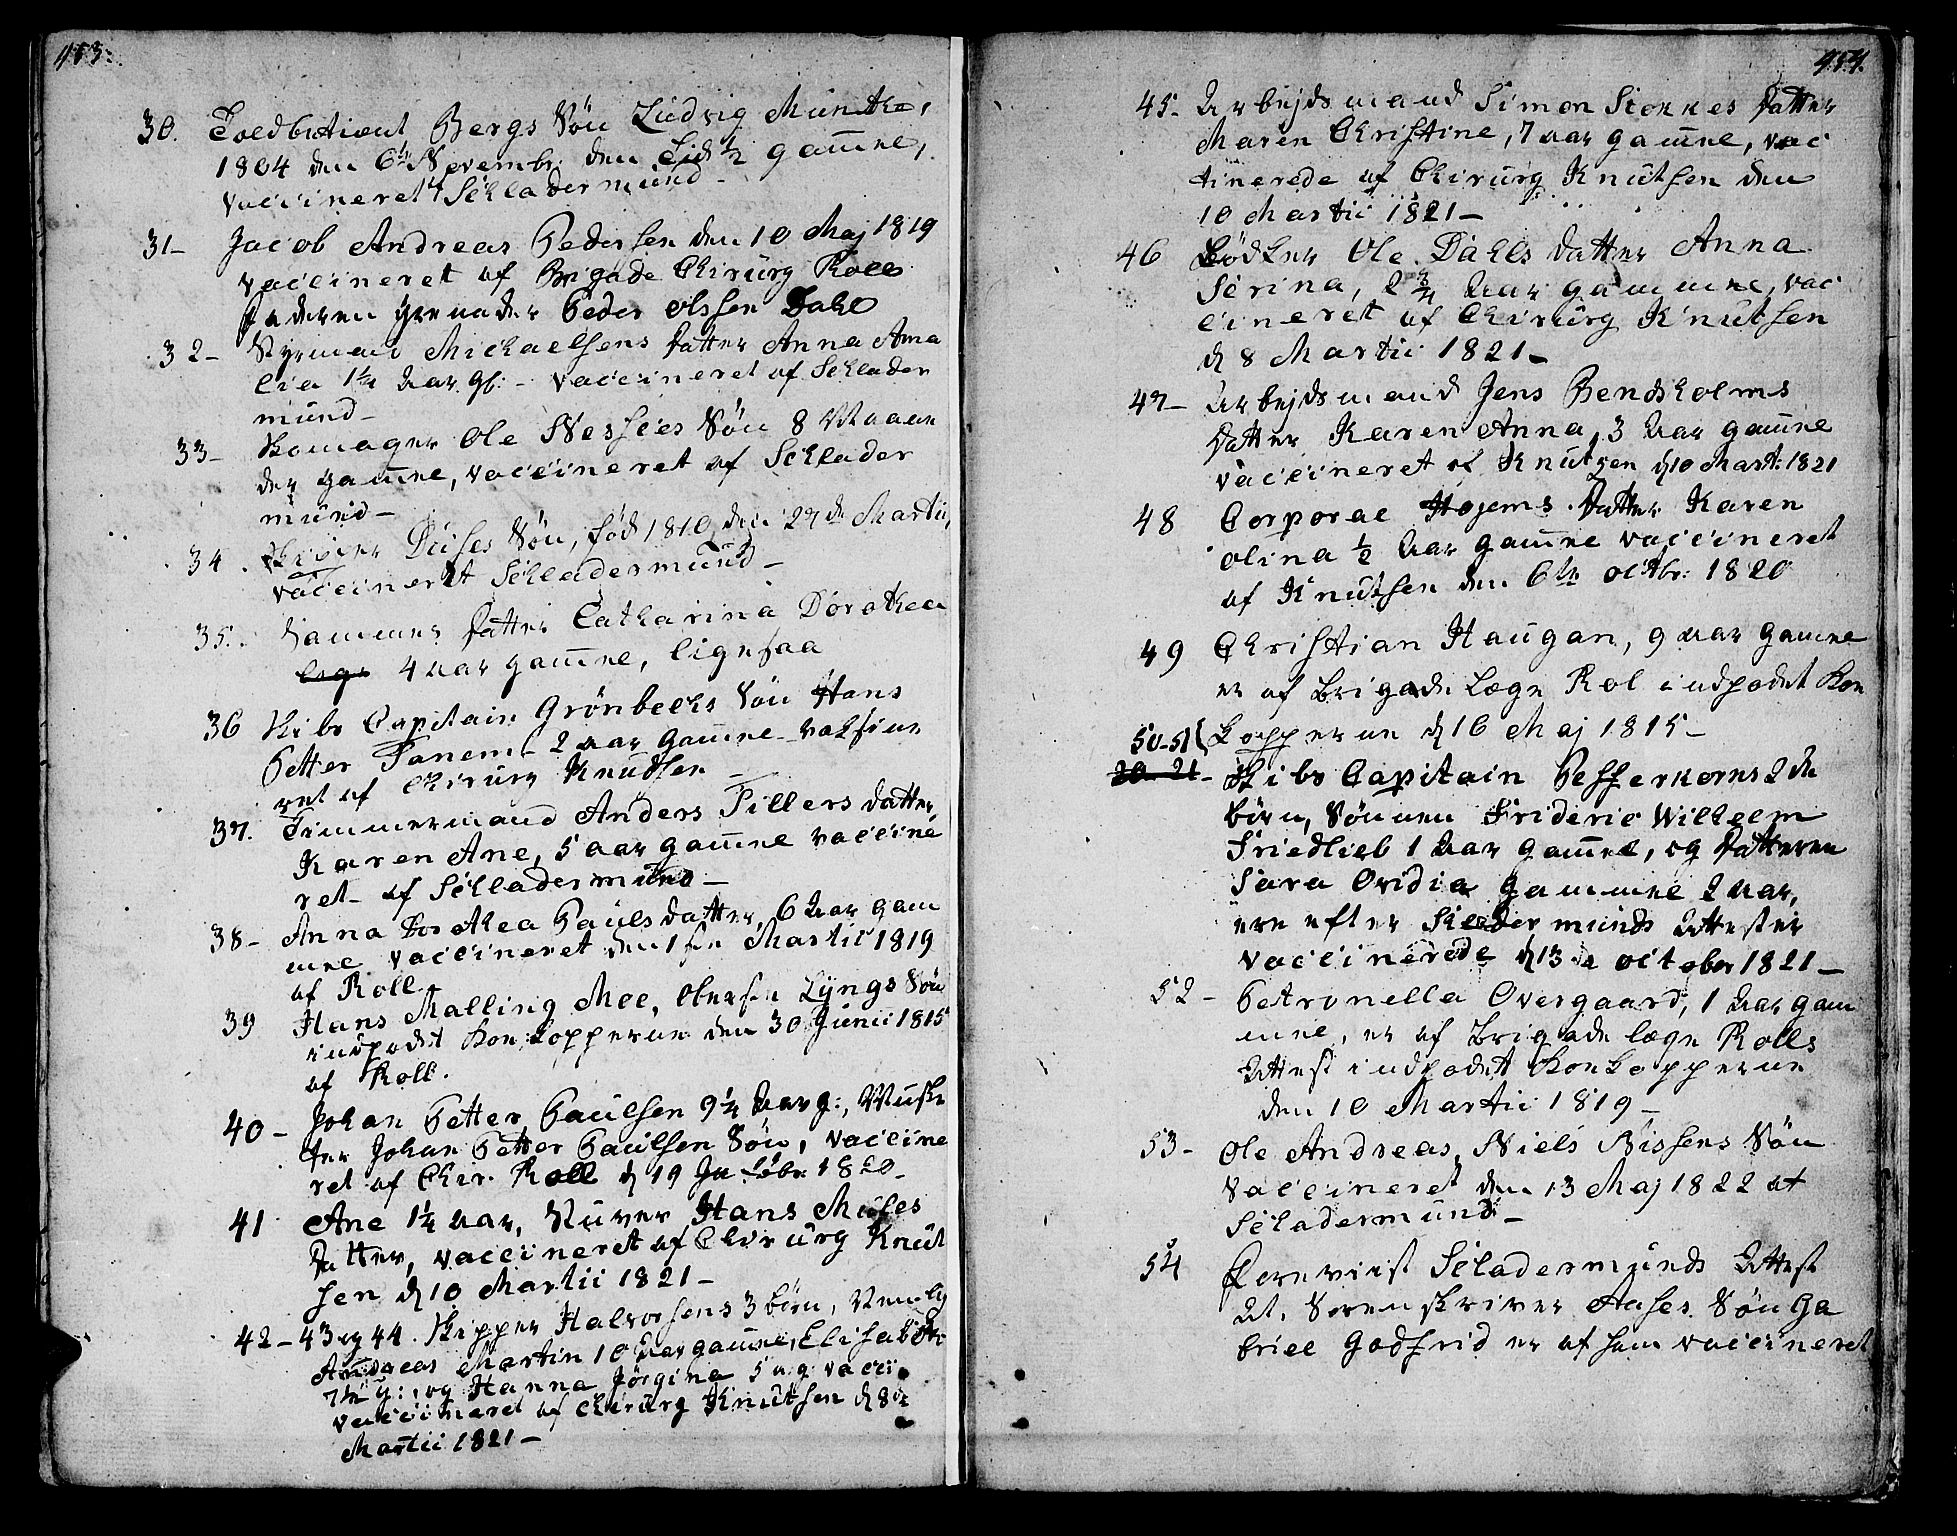 453.
30. Toldbetient Bergs Søn Ludvig Munthe,
1804 den 6te Novembr. den Tid ½ gam̅el,
vacineret Schladermund
31 – Jacob Andreas Pedersen den 10 Maj 1819
vaccineret af Brigade Chirurg Roll
Faderen Grenader Peder Olssen Dahl
32 – Styrmand Michaelsens Datter Anna Ama
lia 1¼ Aar gl: – vaccineret af Schlader
mund –
33 – Ole Søn 8 Maane
der gam̅el, vaccineret af Schlader
mund –
34. Skriver Søn, fød 1810 den 27de Martii,
vaccineret Schladermund –
35. Sammes Datter Catharina Dorothea
4 aar gam̅el, ligesaa
36 Skibs Capitain Grønbechs Søn Hans
Petter Tanem – 2 aar gam̅el – vaksine
ret af Chirurg Knudsen
37. Timmermand Anders Tillers datter
Karen Ane, 5 aar gam̅el vaccine
ret – af Schladermund –
38 – Anna Dorothea Pauls datter, 6 Aar gam
mel vaccineret den 1ste Martii 1819
af Roll.
39 Hans Malling Moe, Lyngs Søn
indpodet Kokopperne den 30 Junii 1815
af Roll.
40 – Johan Petter Paulsen 9¼ Aar g:, Muske
ter Johan Petter Paulsen Søn, vaccine
ret af Chir. Roll d 19 1820
41 Ane 1¼ Aar, Hans
Datter, vaccineret af Chirurg Knut
sen d 10 Martii 1821 –
42 – 43 og 44. Skipper Halvorsens 3 børn, Nemlig
Andreas Martin 10 Aar gam̅el, Elisabeth
7½ g:, og Hanna Jørgine 5 a g: vacci
vaccineret af Chirurg Knutsen d 8de
Martii 1821 –
454.
45. Arbejdsmand Simon Datter
Maren Christine, 7 aar gam̅el, vac
tinerede af Chirurg Knutsen den
10 Martii 1821 –
46 Bødker Ole Dahls datter Anna
Serina, 2¾ Aar gammel, vac
cineret af Chirurg Knutsen
d 8 Martii 1821 –
47 – Arbejdsmand Jens Bendsholms
Datter Karen Anna, 3 Aar gam̅el
vaccineret af Knutsen d 10 Mart: 1821
48 Corporal Hojems Datter Karen
Olina ½ Aar gam̅el vaccineret
af Knutsen den 6te Octbr: 1820
49 Christian Haugan, 9 aar gam̅el
er af brigade Læge Rol indpodet Koe
kopperne d 16 Maj 1815 –
50 – 51
20 – 21 – Skibs Capitain Pefferkorns 2de
børn, Sønnen Frideric Wilhelm
Friedlieb 1 Aar gam̅el, og Datteren
Sara Ovidia gammel 2 aar,
ere efter Sladermunds Attester
vaccinerede d 13de October 1821 –
52 – Petronella Overgaard, 1 Aar gam
mel, er af brigade læge Rolls
Attest indpodet Koekopperne
den 10 Martii 1819 –
53 – Ole Andreas, Niels Nissens Søn
vaccineret den 13 Maj 1822 af
Scladermund –
54 Foreviist Scladermunds Attest
at, Sorenskriver Aases Søn Ga
briel Godfrid er af ham vaccineret